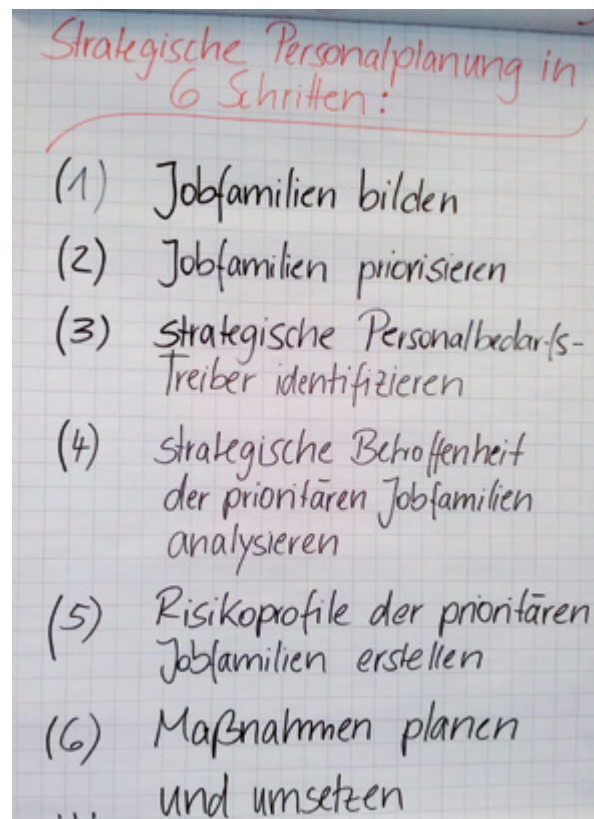 Strategische Personalplanung in
6 Schritten:
(1) Jobfamilien bilden
(2) Jobfamilien priorisieren
(3) strategische Personalbedarfs-
Treiber identifizieren
(4) strategische Betroffenheit
der prioritären Jobfamilien
analysieren
(5) Risikoprofile der prioritären
Jobfamilien erstellen
(6) Maßnahmen planen
und umsetzen